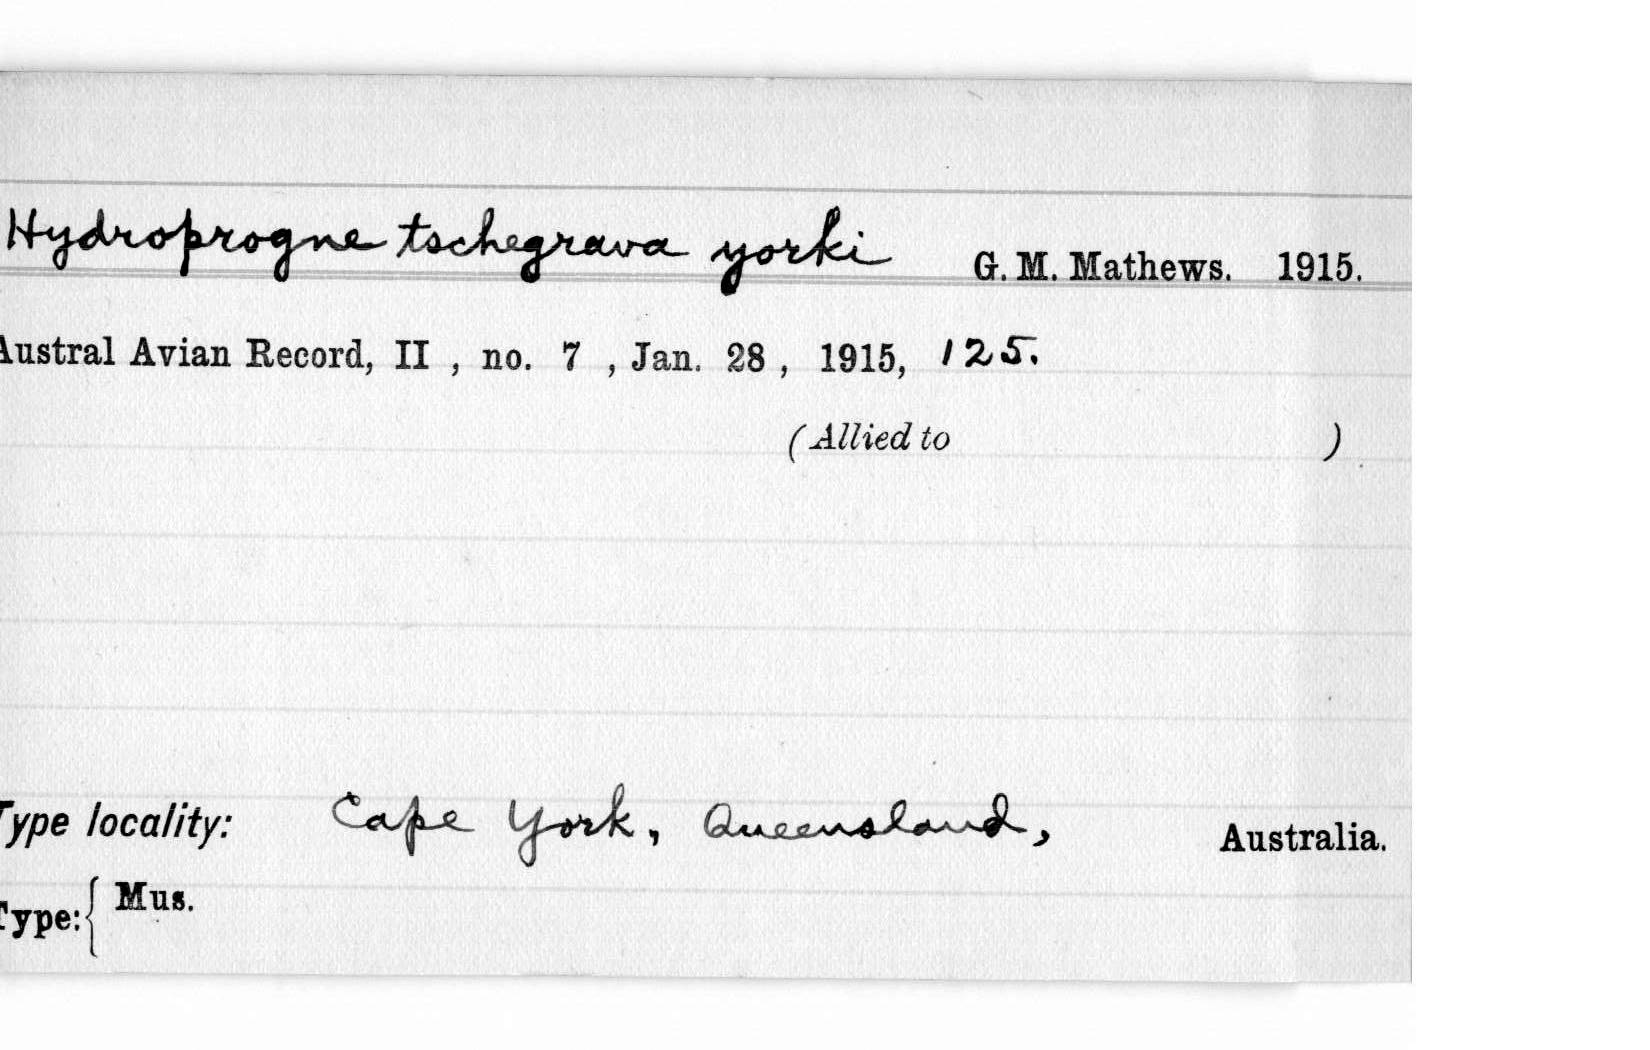 Hydroprogne tschegrava yorki G. M. Mathews. 1915.
Austral Avian Record, II , no. 7 , Jan. 28 , 1915, 125.
(Allied to )
Type locality: Cape York, Queensland, Australia.
Type: { Mus.